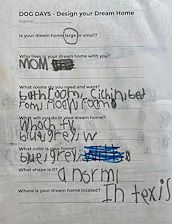 DOG DAYS - Design your Dream Home
Name
Is your dream home large or small?
Who lives in your dream home with you?
MOM
What rooms do you need and want?
bathroom, Cichin, bed
room, Ploolyroom
What will you do in your dream home?
Whach tv
blue, grey, w
What color is your home?
blue, grey,
What shape is it?
a norml
Where is your dream home located?
In texis